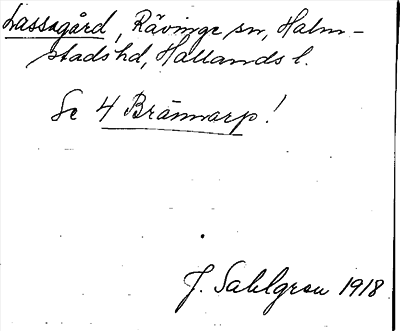 Lassagård, Rävinge sn, Halm-
stads hd, Hallands l.
Se 4 Brännarp!
J. Sahlgren 1918